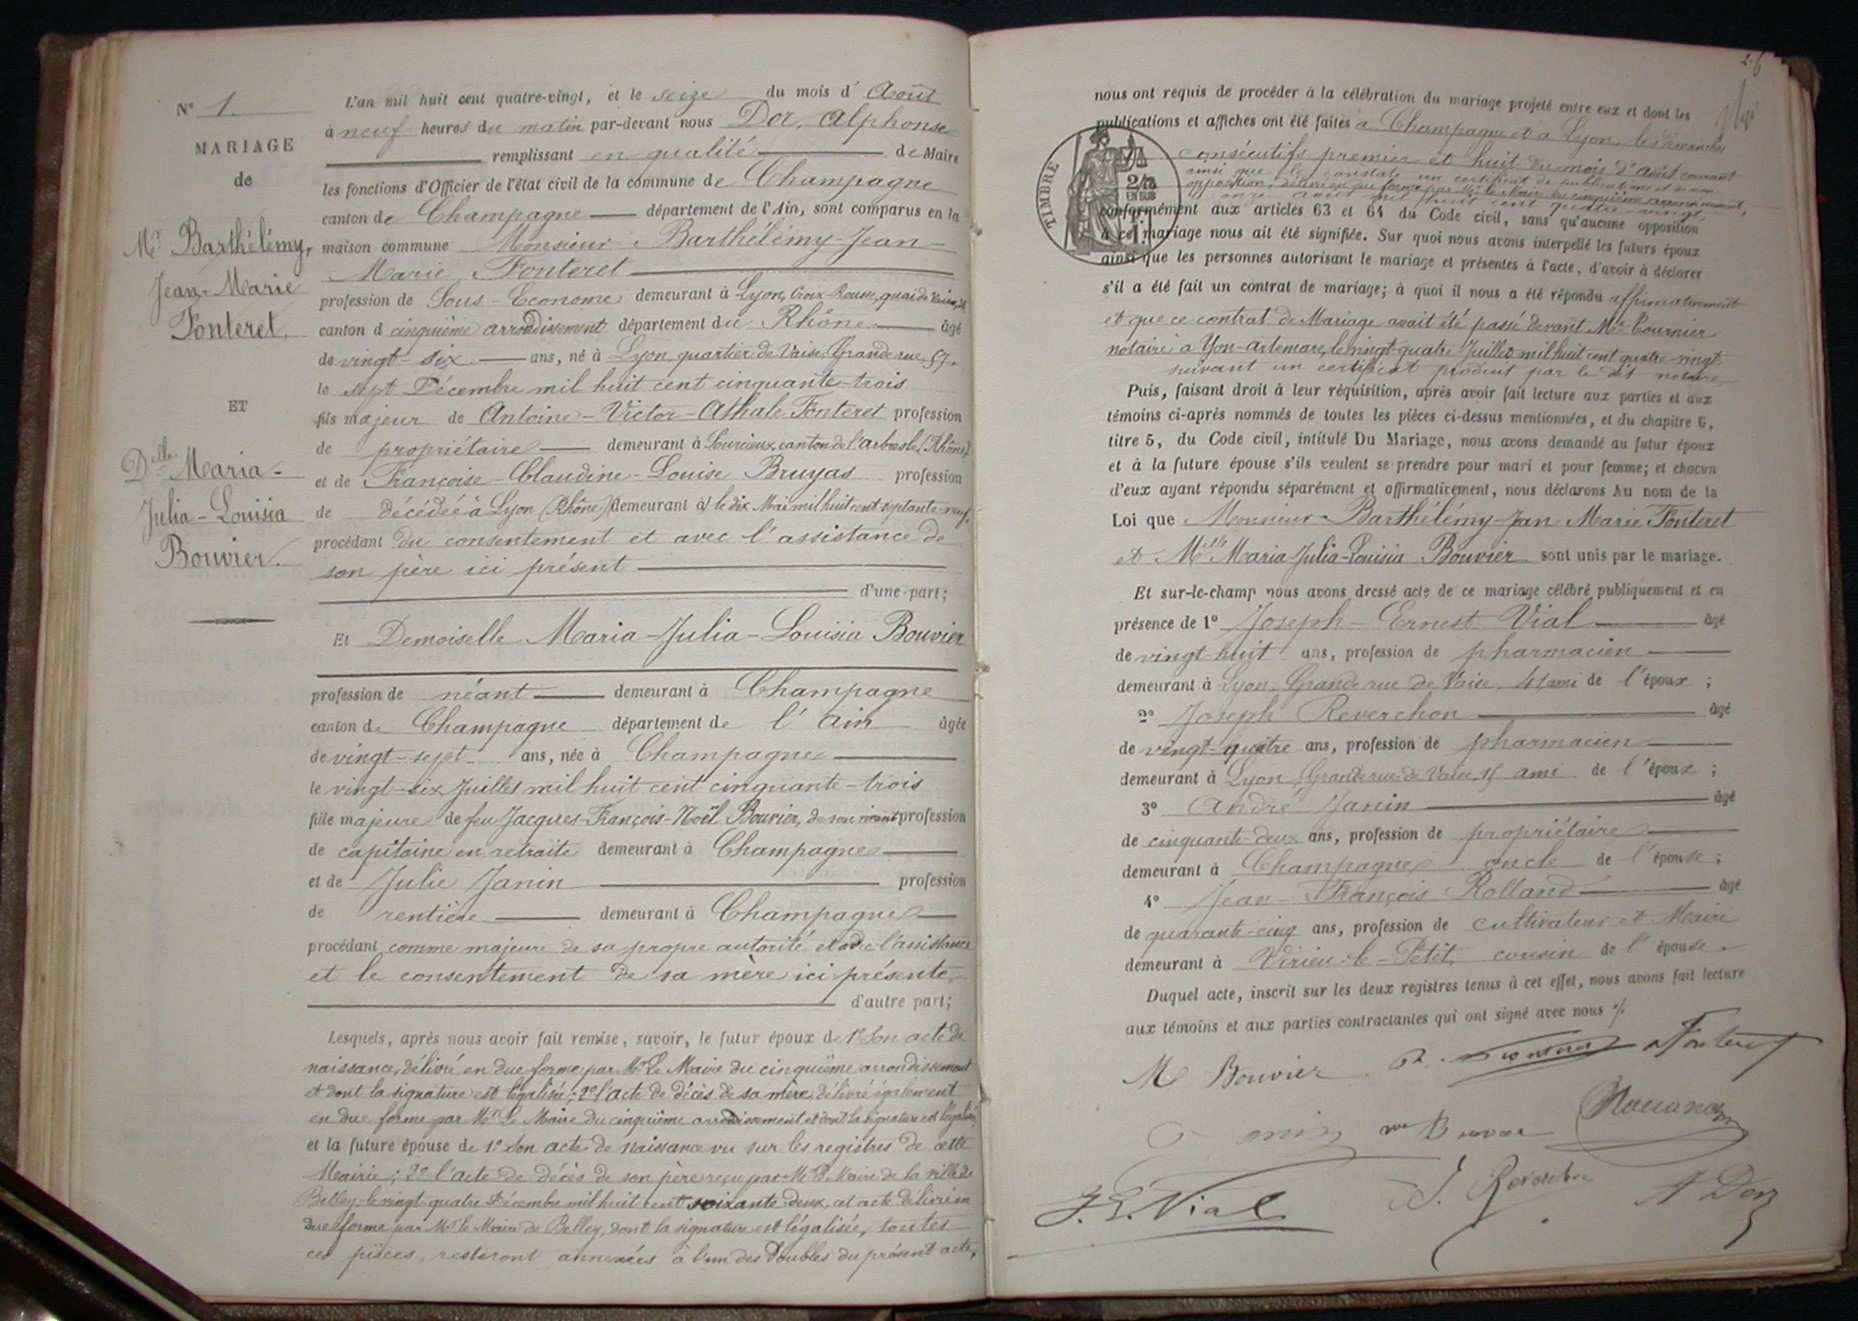 N° 1.
MARIAGE
de
Mr Barthélémy,
Jean-Marie
Fonteret.
ET
Delle Maria-
Julia-Louisia
Bouvier.
L'an mil huit cent quatre-vingt, et le seize du mois d' Août
à neuf heures du matin par-devant nous Dor, Alphonse
remplissant en qualité de Maire
les fonctions d'Officier de l'état civil de la commune de Champagne
canton de Champagne département de l'Ain, sont comparus en la
maison commune Monsieur Barthélémy-Jean
Marie Fonteret
profession de Sous-Econome demeurant à Lyon, Croix Rousse, quai de Vaise,
canton d cinquième arrondissement département du Rhône âgé
de vingt-six ans, né à Lyon quartier de Vaise, Grande rue, 57.
le sept Décembre mil huit cent cinquante-trois
fils majeur de Antoine-Victor-Athale Fonteret profession
de propriétaire demeurant à Sourcieux, canton de l'Arbresle (Rhône)
et de Françoise-Claudine-Louise Bruyas profession
de décédée à Lyon (Rhône) demeurant à le dix Mai mil huit cent septante-neuf.
procédant du consentement et avec l'assistance de
son père ici présent
d'une part;
Et Demoiselle Maria-Julia-Louisia Bouvier
profession de néant demeurant à Champagne
canton de Champagne département de l'Ain âgée
de vingt-sept ans, née à Champagne
le vingt-six Juillet mil huit cent cinquante-trois
fille majeure de feu Jacques-François-Noël Bouvier, de son vivant profession
de capitaine en retraite demeurant à Champagne
et de Julie Janin profession
de rentière demeurant à Champagne
procédant comme majeure de sa propre autorité et avec l'assistance
et le consentement de sa mère ici présente.
d'autre part;
Lesquels, après nous avoir fait remise, savoir, le futur époux de 1° Son acte de
naissance, délivré en due forme par Mr Le Maire du cinquième arrondissement
et dont la signature est légalisée; 2° l'acte de décès de sa mère, délivré également
en due forme par Mr Le Maire du cinquième arrondissement et dont la signature est légalisée,
et la future épouse de 1° Son acte de naissance vu sur les registres de cette
Mairie; 2° l'acte de décès de son père reçu par Mr le Maire de la ville de
Belley, le vingt quatre Décembre mil huit cent soixante-deux, cet acte délivré en
due forme par Mr le Maire de Belley, dont la signature est légalisée, toutes
ces pièces resteront annexées à l'un des Doubles du présent acte,
26
nous ont requis de procéder à la célébration du mariage projeté entre eux et dont les
publications et affiches ont été faites à Champagne et à Lyon, les dimanches
consécutifs premier et huit du mois d'août courant
ainsi que le constate un certificat de publications et non
opposition, délivré en due forme par Mr le Maire du cinquième arrondissement,
le onze août mil huit cent quatre-vingt,
conformément aux articles 63 et 64 du Code civil, sans qu'aucune opposition
à ce mariage nous ait été signifiée. Sur quoi nous avons interpellé les futurs époux
ainsi que les personnes autorisant le mariage et présentes à l'acte, d'avoir à déclarer
s'il a été fait un contrat de mariage; à quoi il nous a été répondu affirmativement
et que ce contrat de Mariage avait été passé devant Me Tournier
notaire à Yon-Artemare, le vingt-quatre Juillet mil huit cent quatre-vingt
suivant un certificat produit par le dit notaire
Puis, faisant droit à leur réquisition, après avoir fait lecture aux parties et aux
témoins ci-après nommés de toutes les pièces ci-dessus mentionnées, et du chapitre 6,
titre 5, du Code civil, intitulé Du Mariage, nous avons demandé au futur époux
et à la future épouse s'ils veulent se prendre pour mari et pour femme; et chacun
d'eux ayant répondu séparément et affirmativement, nous déclarons Au nom de la
Loi que Monsieur Barthélémy-Jean Marie Fonteret
et Melle Maria-Julia-Louisia Bouvier sont unis par le mariage.
Et sur-le-champ nous avons dressé acte de ce mariage célébré publiquement et en
présence de 1° Joseph-Ernest Vial âgé
de vingt-huit ans, profession de pharmacien
demeurant à Lyon, Grande rue de Vaise, 41 ami de l'époux;
2° Joseph Reverchon âgé
de vingt-quatre ans, profession de pharmacien
demeurant à Lyon, Grande rue de Vaise, ami de l'époux;
3° André Janin âgé
de cinquante-deux ans, profession de propriétaire
demeurant à Champagne oncle de l'épouse;
4° Jean-François Rolland âgé
de quarante-cinq ans, profession de cultivateur et Maire
demeurant à Virieu-le-Petit, cousin de l'épouse.
Duquel acte, inscrit sur les deux registres tenus à cet effet, nous avons fait lecture
aux témoins et aux parties contractantes qui ont signé avec nous
TIMBRE
M Bouvier Fonteret
Bouvier
J. E. Vial J. Reverchon A Dor